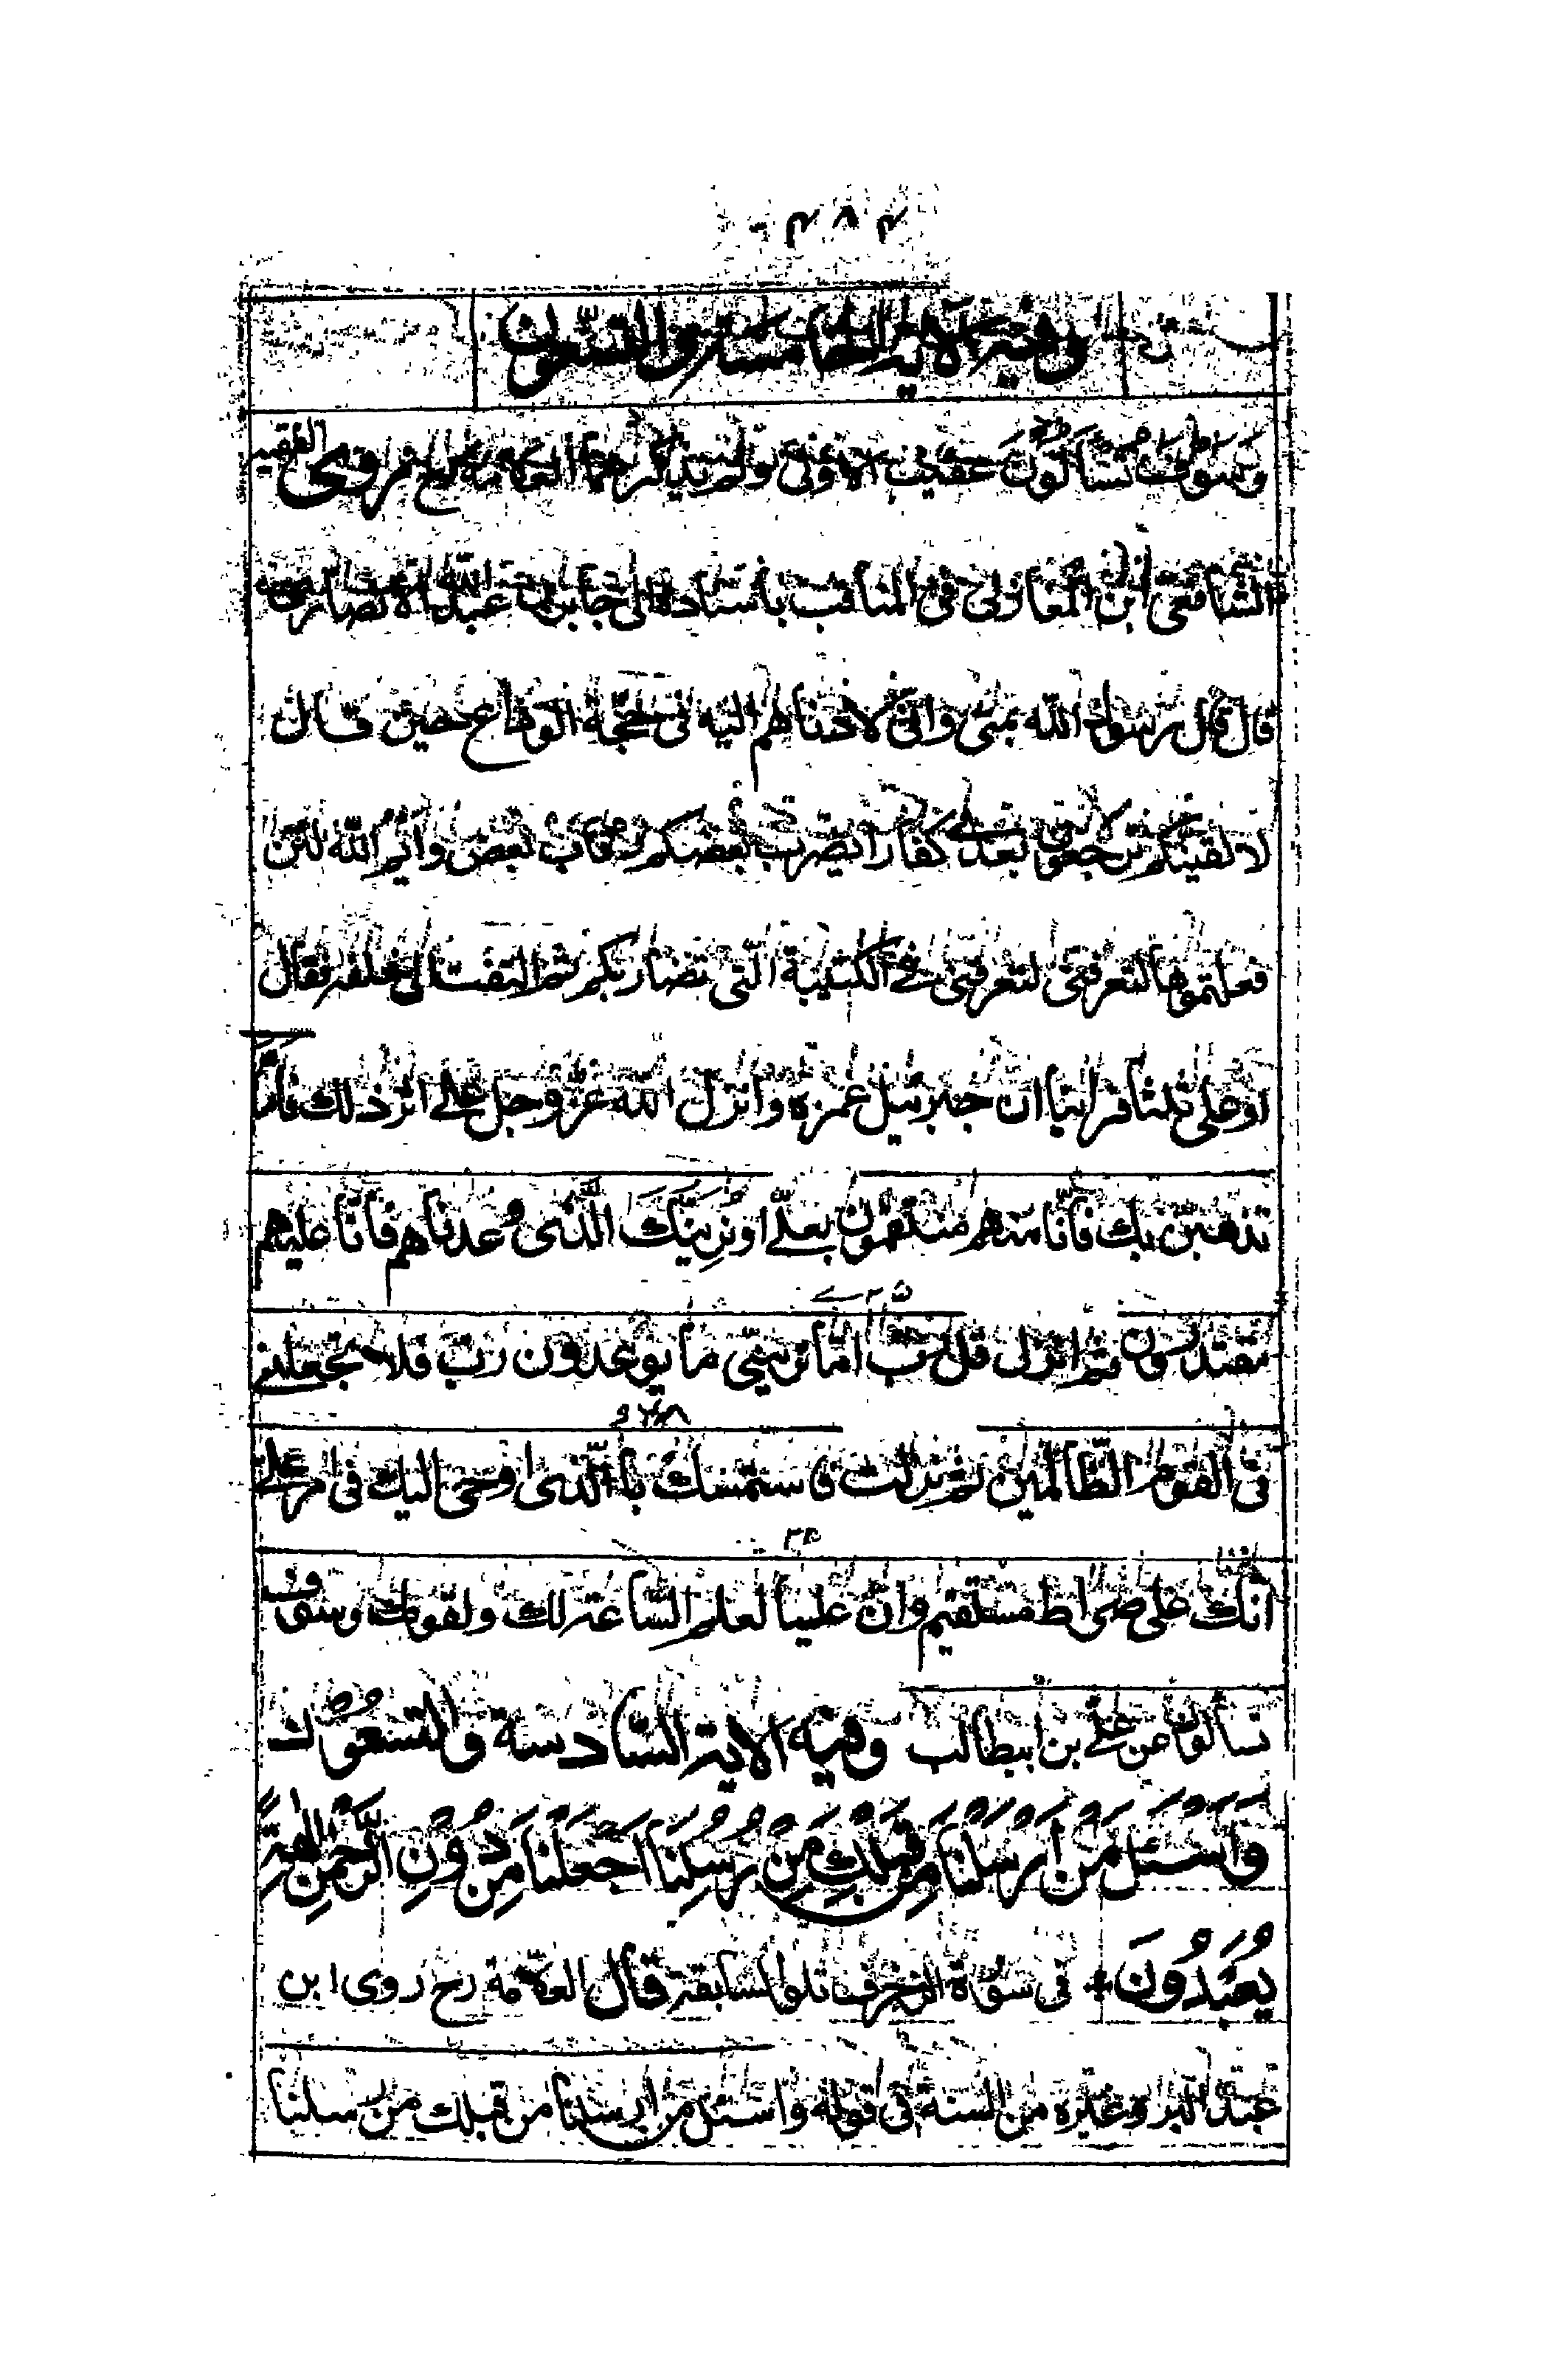 ۴۸۴
وفيه الآية الخامسة والتسعون
وَسَوْفَ تُسْأَلُونَ عقيب الاولى ولم يذكرها العلامة رح روى الفقيه
الشافعى ابن المغازلى فى المناقب باسناده الى جابر بن عبد الله الانصارى
قال قال رسول الله بمنى وانى لادناهم اليه فى حجة الوداع حين قال
لا لفينكم ترجعون بعدى كفارا يضرب بعضكم رقاب بعض وايم الله لئن
فعلتموها لتعرفنى لتعرفنى فى الكتيبة التى تضاربكم ثم التفت الى خلفه فقال
او على ثلثا فراينا ان جبرئيل غمزه وانزل الله عز وجل على اثر ذلك فاما
نذهبن بك فانا منهم منتقمون بعلى او نرينك الذى وعدناهم فانا عليهم
مقتدرون ثم انزل قل رب اما ترينى ما يوعدون رب فلا تجعلنى
فى القوم الظالمين ثم نزلت فاستمسك بالذى اوحى اليك فى امر على
انك على صراط مستقيم وان عليا لعلم الساعة لك ولقومك وسوف
تسألون عن على بن ابيطالب وفيه الاية السادسة والتسعون
وَاسْئَلْ مَنْ أَرْسَلْنَا مِنْ قَبْلِكَ مِنْ رُسُلِنَا أَجَعَلْنَا مِنْ دُونِ الرَّحْمٰنِ اٰلِهَةً
يُعْبَدُونَ فى سورة الزخرف تلو السابقة قال العلامة رح روى ابن
عبد البر وغيره من السنة فى قوله واسئل من ارسلنا من قبلك من رسلنا